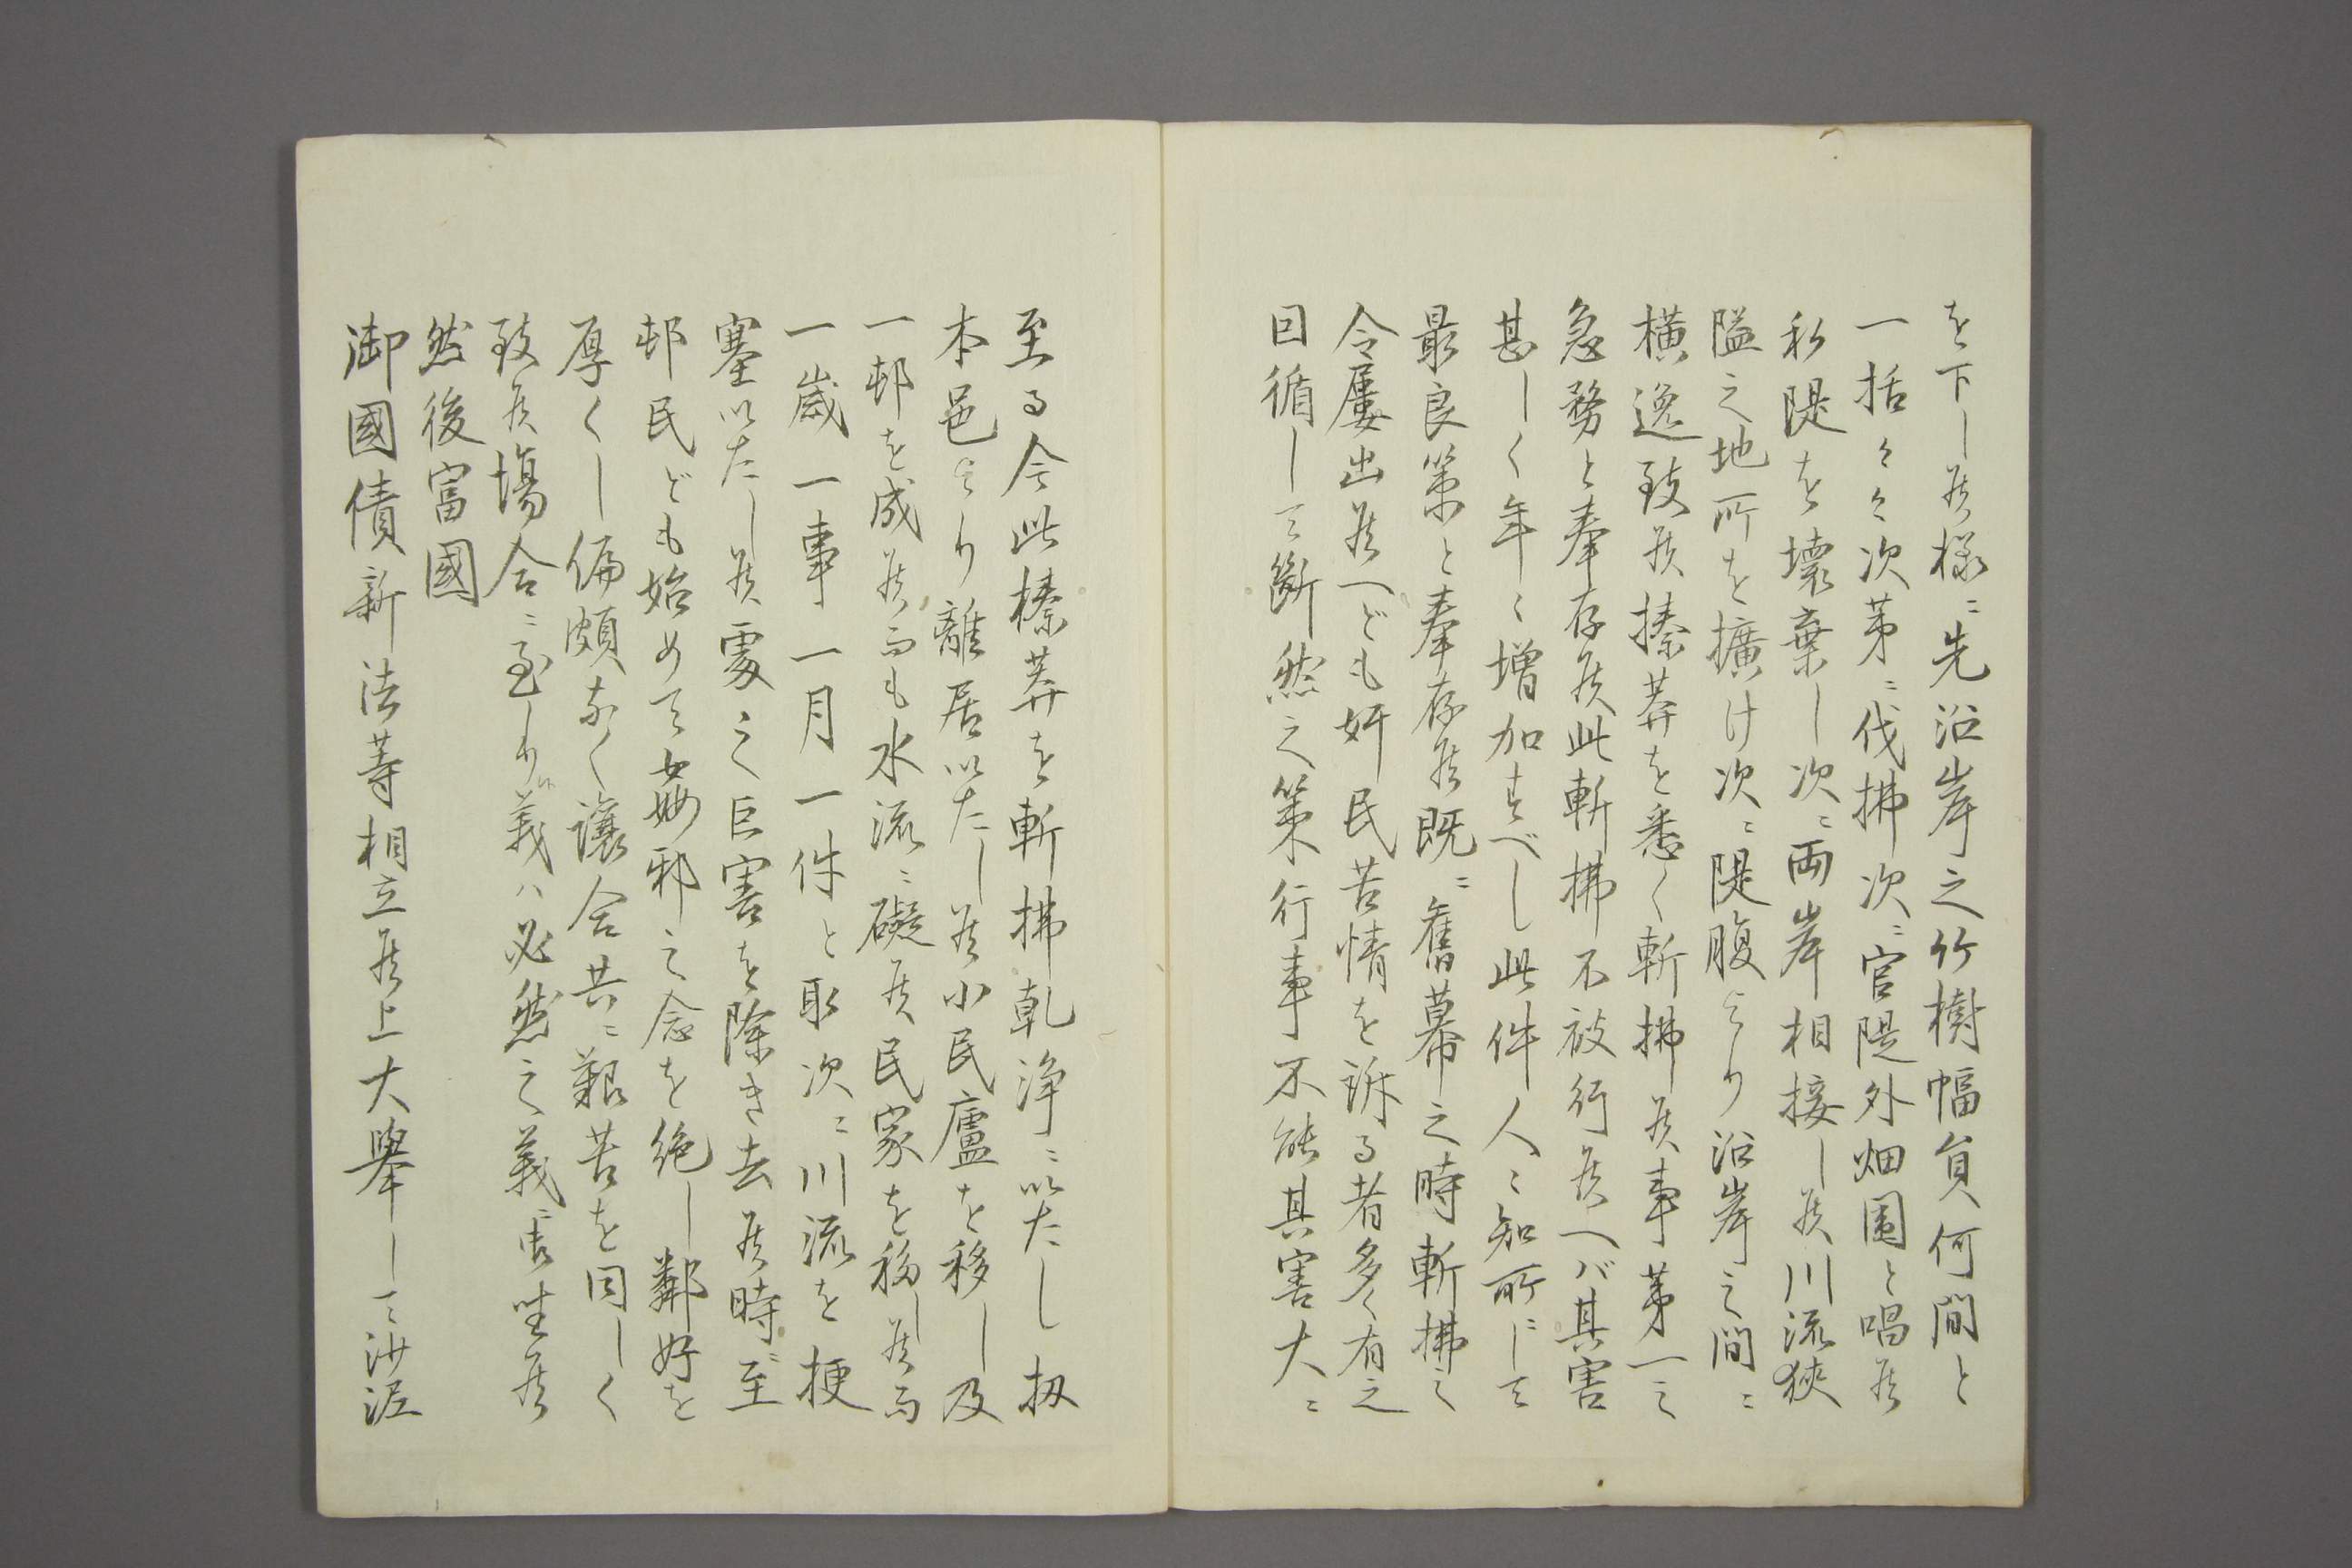 を下し候様ニ先沿岸之竹樹幅員何間と
一括々々次第ニ伐拂次ニ官隄外畑園と唱候
私隄を壊棄し次ニ両岸相接し候川流狹
隘之地所を擴け次ニ隄腹ゟ沿岸之間ニ
横逸致候榛莽を悉く斬拂候事第一之
急務と奉存候此斬拂不被行候へバ其害
甚しく年々増加すべし此件人々知所にして
最良策と奉存候既ニ舊幕之時斬拂之
令屢出候へども奸民苦情を訴る者多く有之
因循して斷然之策行事不能其害大ニ
至る今此榛莽を斬拂乾浄ニいたし扨
本邑ゟ離居いたし候小民廬を移し及
一邨を成候而も水流ニ礙候民家を移し候而
一歳一事一月一件と取次ニ川流を梗
塞いたし候處之巨害を除き去候時ニ至
邨民ども始めて姦邪之念を絶し鄰好を
厚くし偏頗なく讓合共ニ艱苦を同しく
致候場合ニ至り候義ハ必然之義ニ御坐候
然後富國
御國債新法等相立候上大擧して汫泥